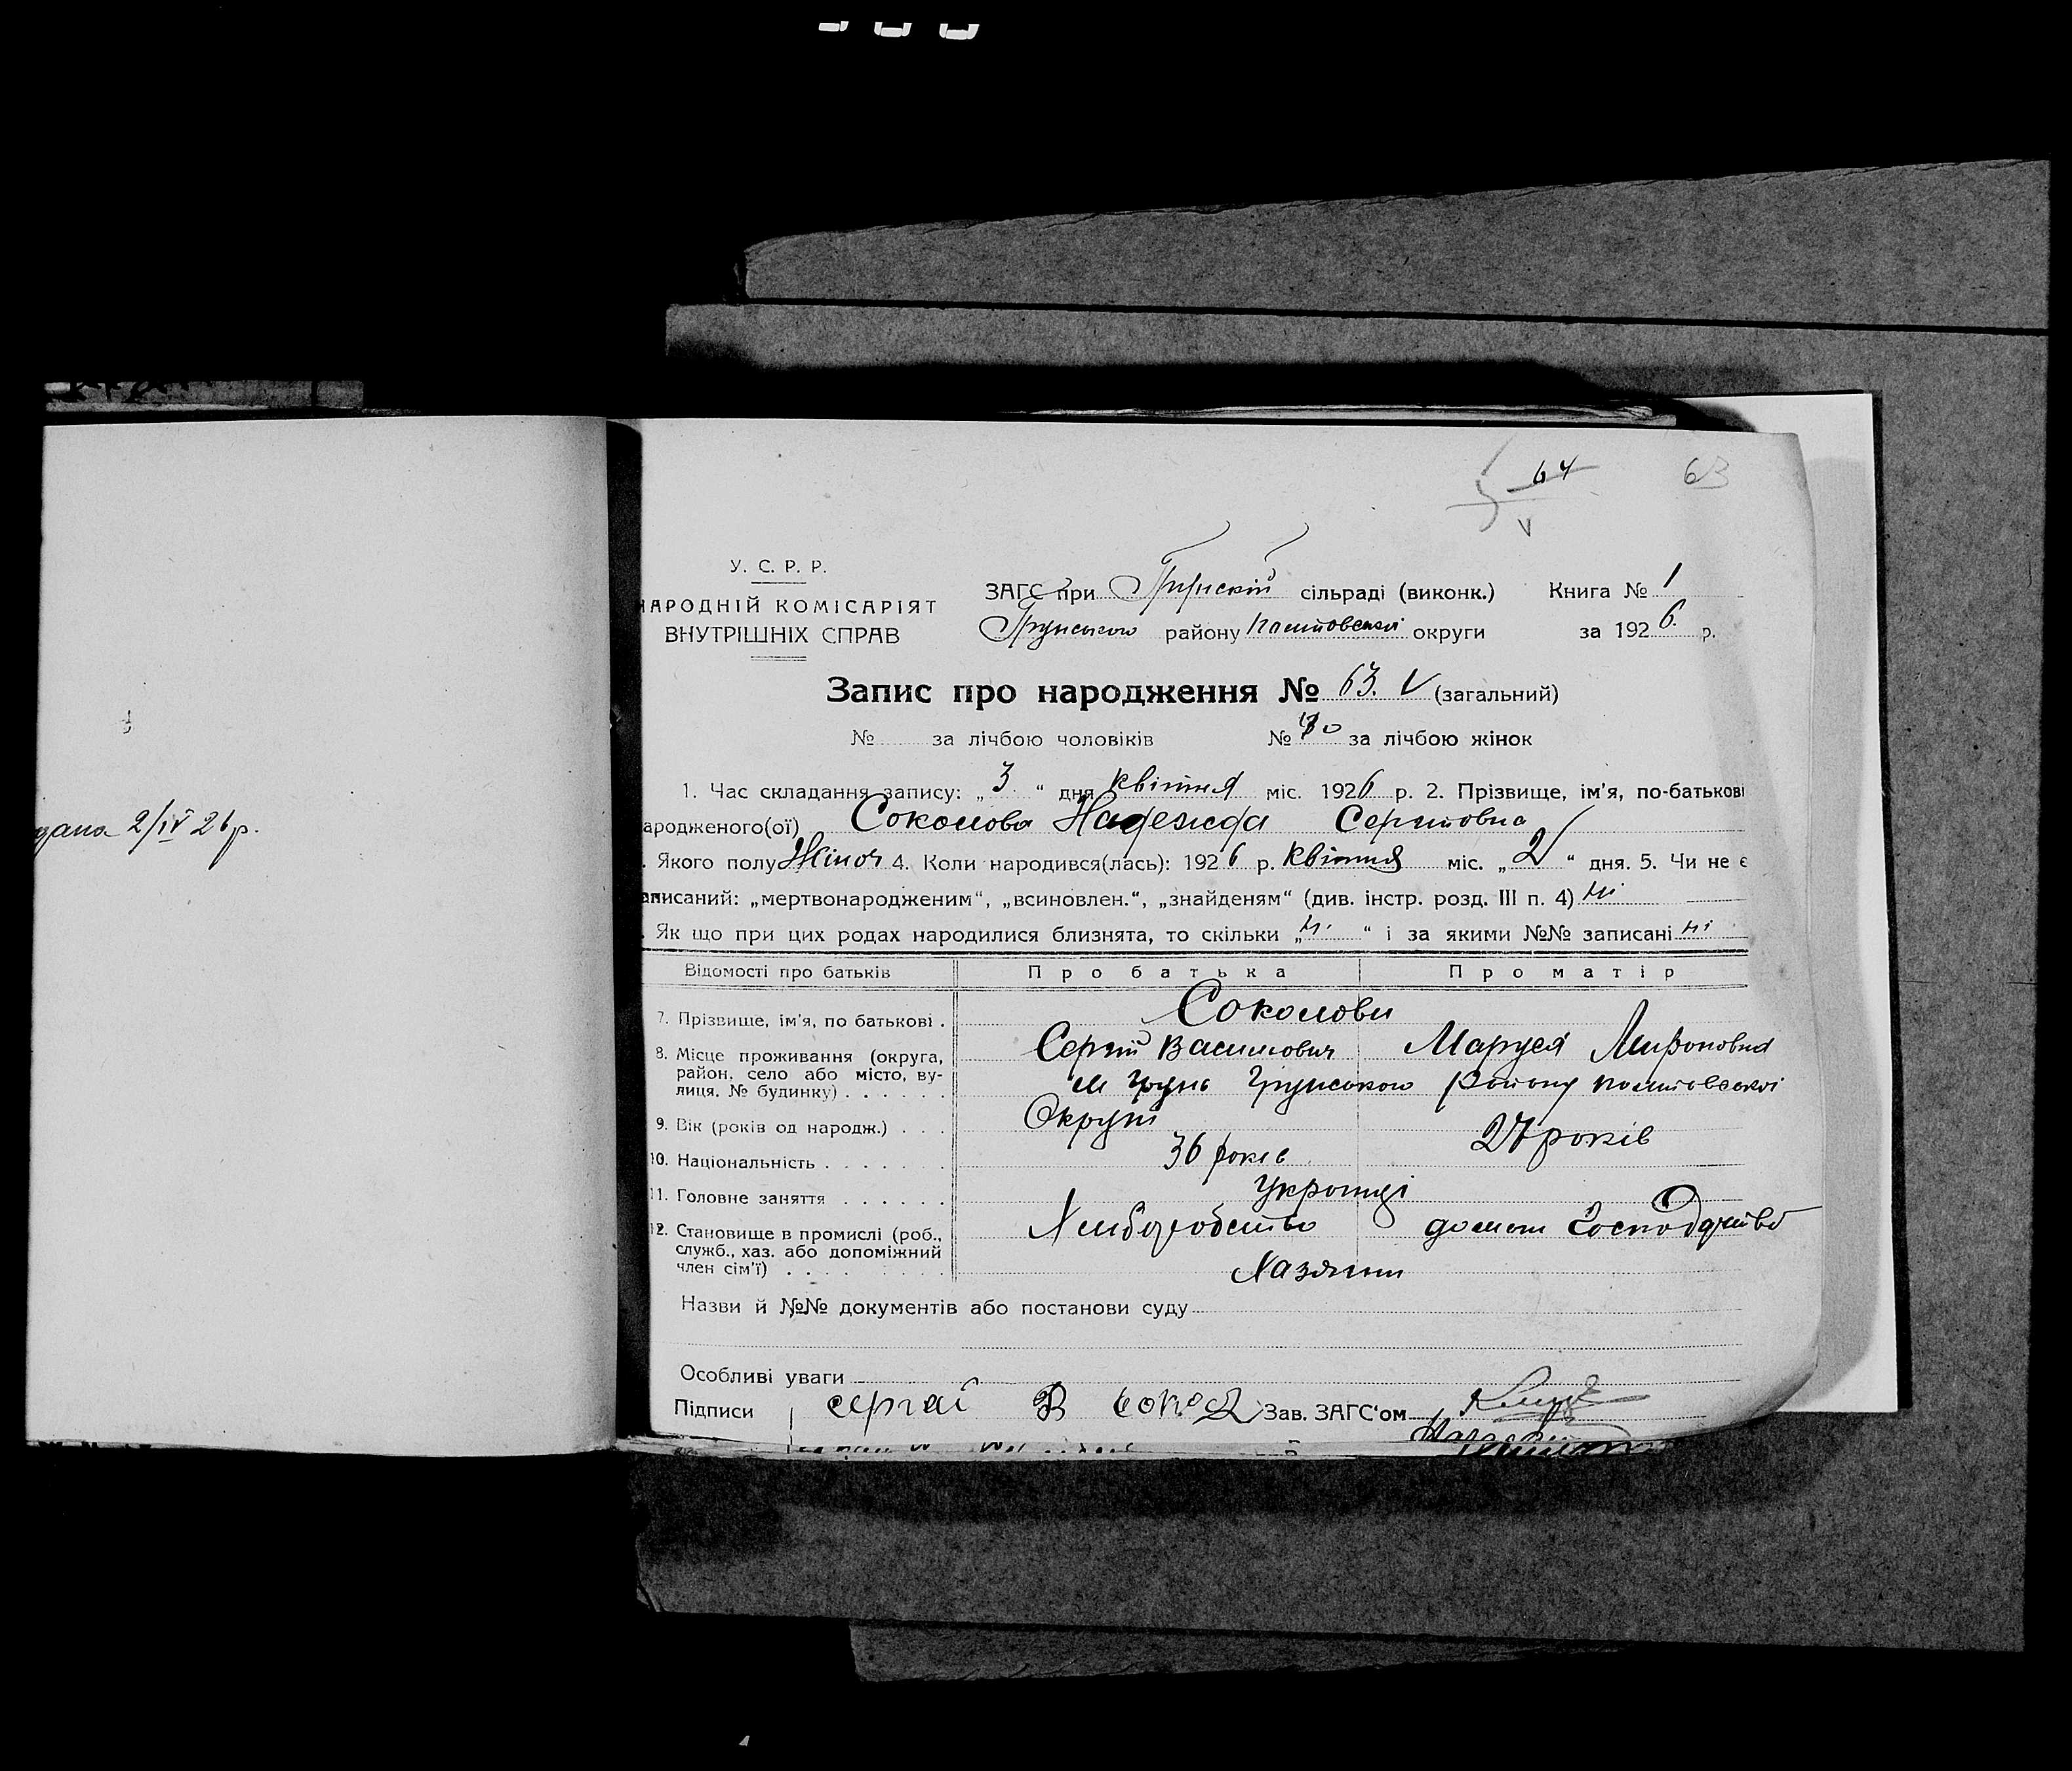 64
63
V
У. С. Р. Р.
НАРОДНІЙ КОМІСАРІЯТ
ВНУТРІШНІХ СПРАВ
ЗАГС при Грунскій сільраді (виконк.) Книга № 1
Грунського району округи за 1926 р.
Запис про народження № 63. V (загальний)
№ за лічбою чоловіків № за лічбою жінок
1. Час складання запису: „3“ дня квітня міс. 1926 р. 2. Прізвище, ім'я, по-батькові
ародженого(ої) Соколова Надежда Сергіовна
. Якого полу Жіноч 4. Коли народився(лась): 1926 р. квітня міс. „2“ дня. 5. Чи не є
аписаний: „мертвонародженим“, „всиновлен.“, „знайденям“ (див. інстр. розд. III п. 4) ні
. Як що при цих родах народилися близнята, то скільки „ні“ і за якими №№ записані ні
Відомості про батьків Про батька Про матір
7. Прізвище, ім'я, по батькові . Соколови
Сергій Васильович Маруся Мироновна
8. Місце проживання (округа, район, село або місто, вулиця, № будинку) . . . . . . м Грунь Грунського району
Округи
9. Вік (років од народж.) . . . 36 років 27 років
10. Національність . . . . . . . Українці
11. Головне заняття . . . . . . Хліборобство домашн Господарство
12. Становище в промислі (роб., служб., хаз. або допоміжний член сім'ї) . . . . . . . . Хазяини
Назви й №№ документів або постанови суду
Особливі уваги
Підписи сергей В Зав. ЗАГС'ом
дана 2/IV 26 р.